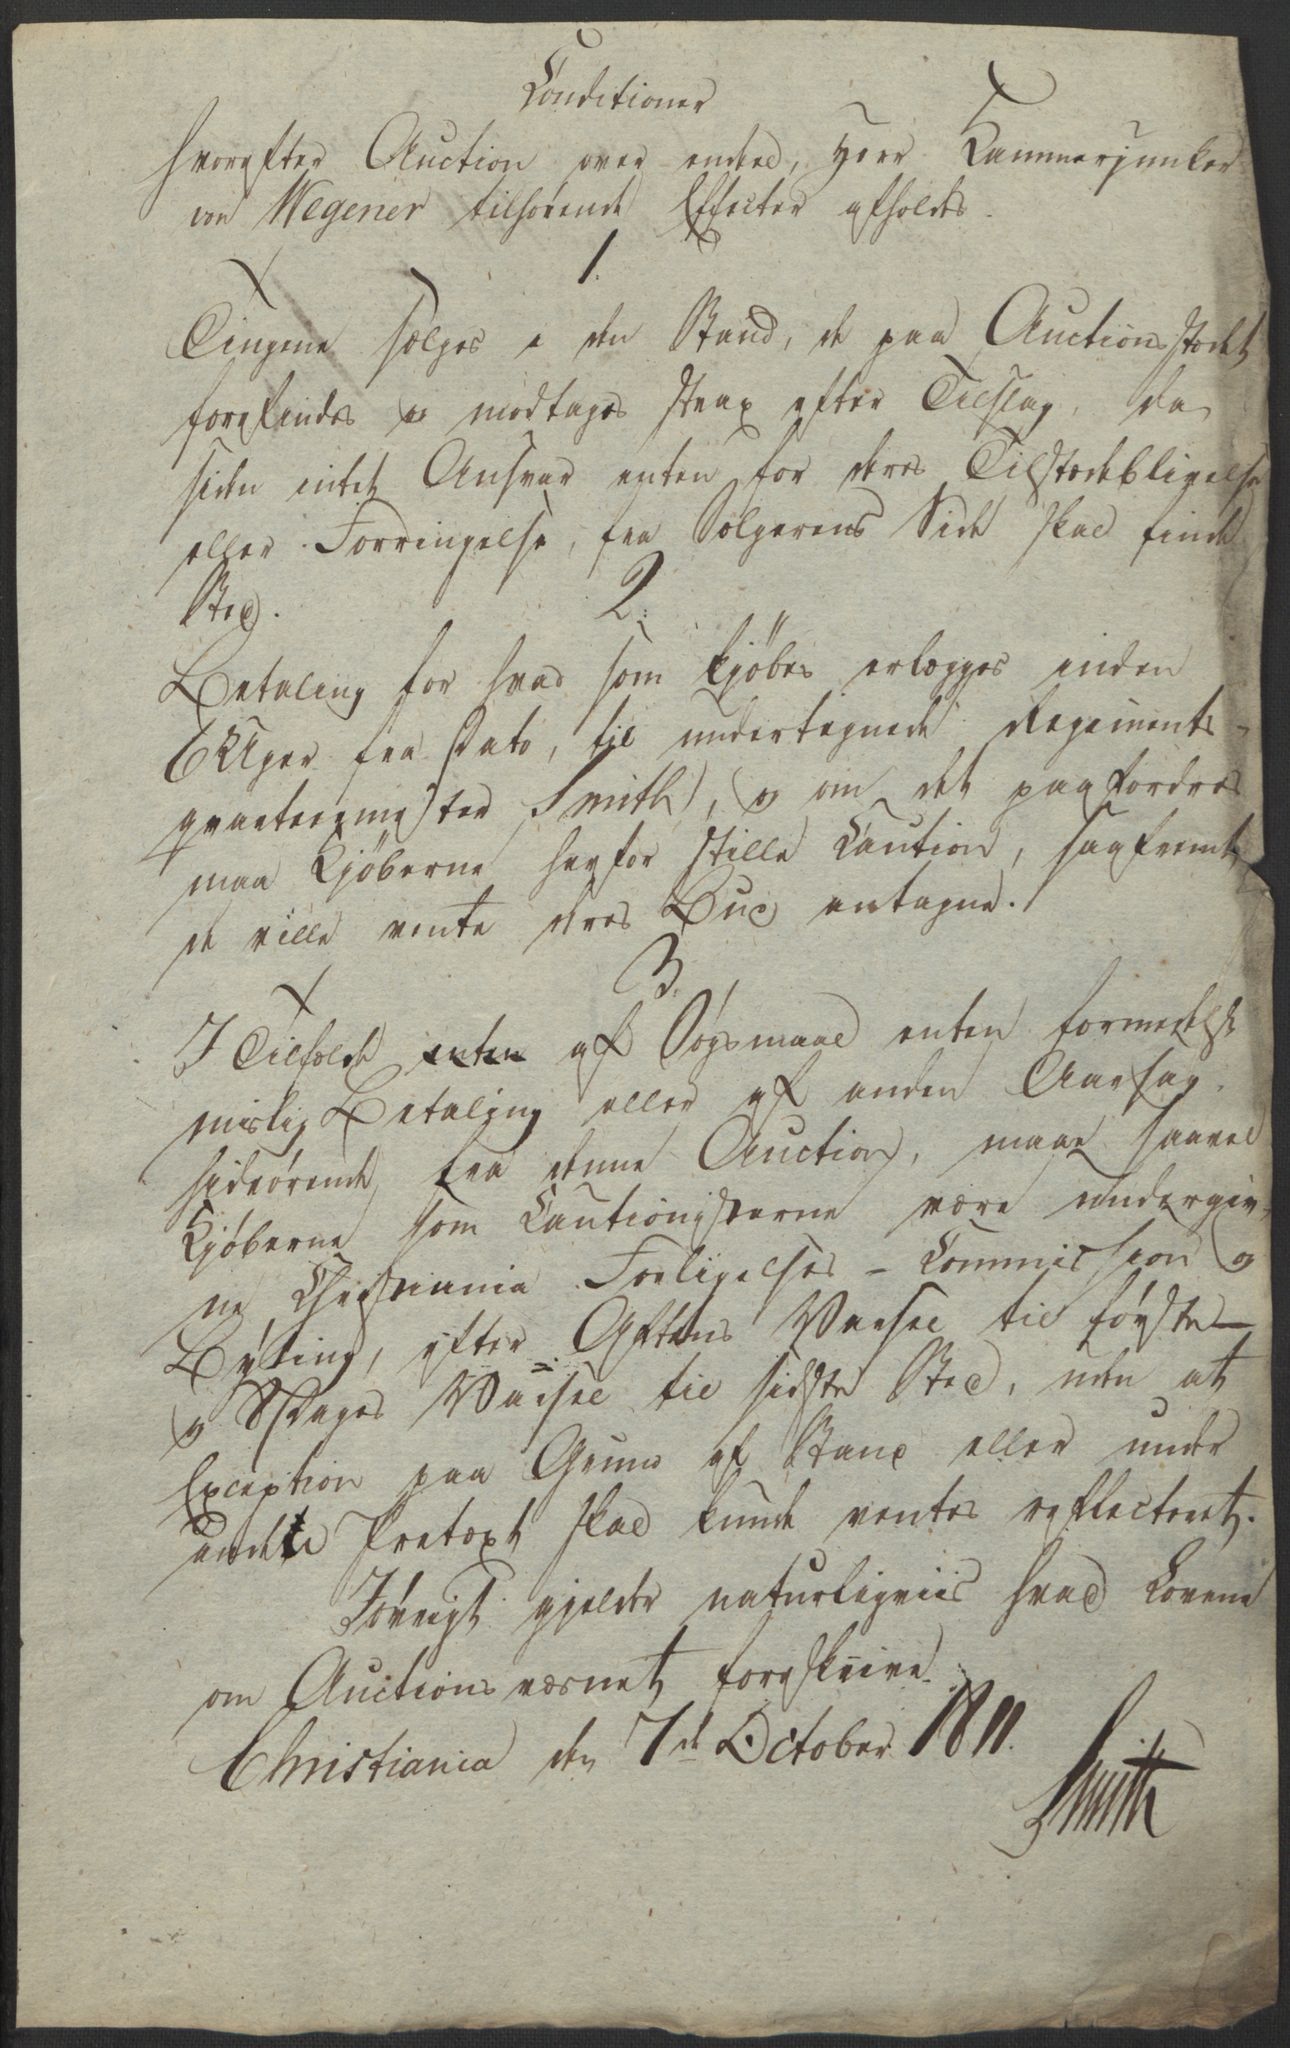 Conditioner
hvorefter Auction over endeel, Herr Kammerjunker
von Wegener tilhørende Effecter afholdes.
1.
Tingene sælges i den Stand, de paa Auctionsstædet
forefindes og modtages strax efter Tilslag, da
siden intet Ansvar enten for deres Tilstædeblivelse
eller Forringelse, fra Sælgerens Side skal finde
Sted.
2.
Betaling for hvad som kjöbes erlægges inden
6 Uger fra Dato, til undertegnede Regiments-
qvarteermester Smith, og om det paafordres
maa Kjöberne herfor stille Caution, saafremt
de ville vente deres Bud antagne.
3.
I Tilfælde enten af Søgsmaal enten formedelst
mislig Betaling eller af anden Aarsag
hidrørende fra denne Auction, maae saavel
Kjøberne som Cautionisterne være undergiv-
ne Christiania Forligelses-Commission og
Bything, efter Aftens Varsel til første-
og Dages Varsel til sidste Sted, uden at
Exception paa Grund af Stand eller under
andet Prætext skal kunde ventes reflecteret.
Iøvrigt gjelder naturligviis hvad Lovene
om Auctionsvæsnet foreskrive.
Christiania den 7de October 1811.
Smith